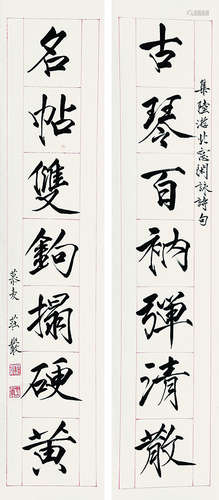 古琴百衲彈清散
集陸游北窗閑詠詩句
名帖雙鉤搨硬黃
慕夌 莊嚴